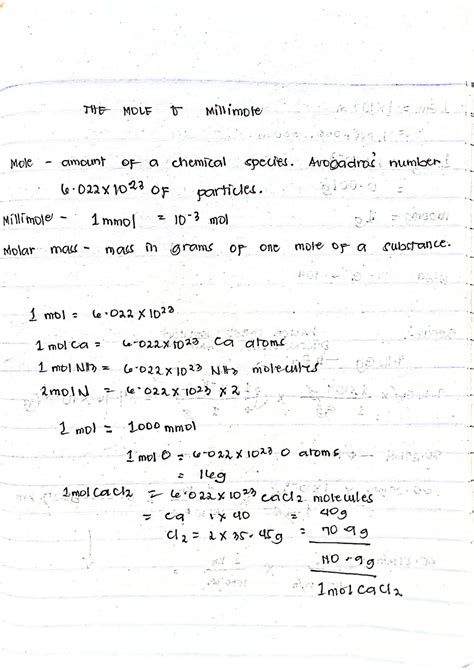 THE MOLE & Millimole
Mole - amount of a chemical species. Avogadros' number
6.022 x 10^23 of particles.
Millimole - 1 mmol = 10^-3 mol
Molar mass - mass in grams of one mole of a substance.
1 mol = 6.022 x 10^23
1 mol Ca = 6.022 x 10^23 Ca atoms
1 mol NH3 = 6.022 x 10^23 NH3 molecules
2 mol N = 6.022 x 10^23 x 2
1 mol = 1000 mmol
1 mol O = 6.022 x 10^23 O atoms
= 16g
1 mol CaCl2 = 6.022 x 10^23 CaCl2 molecules
= Ca 1 x 40 = 40g
Cl2 = 2 x 35.45g = 70.9g
110.9g
1 mol CaCl2